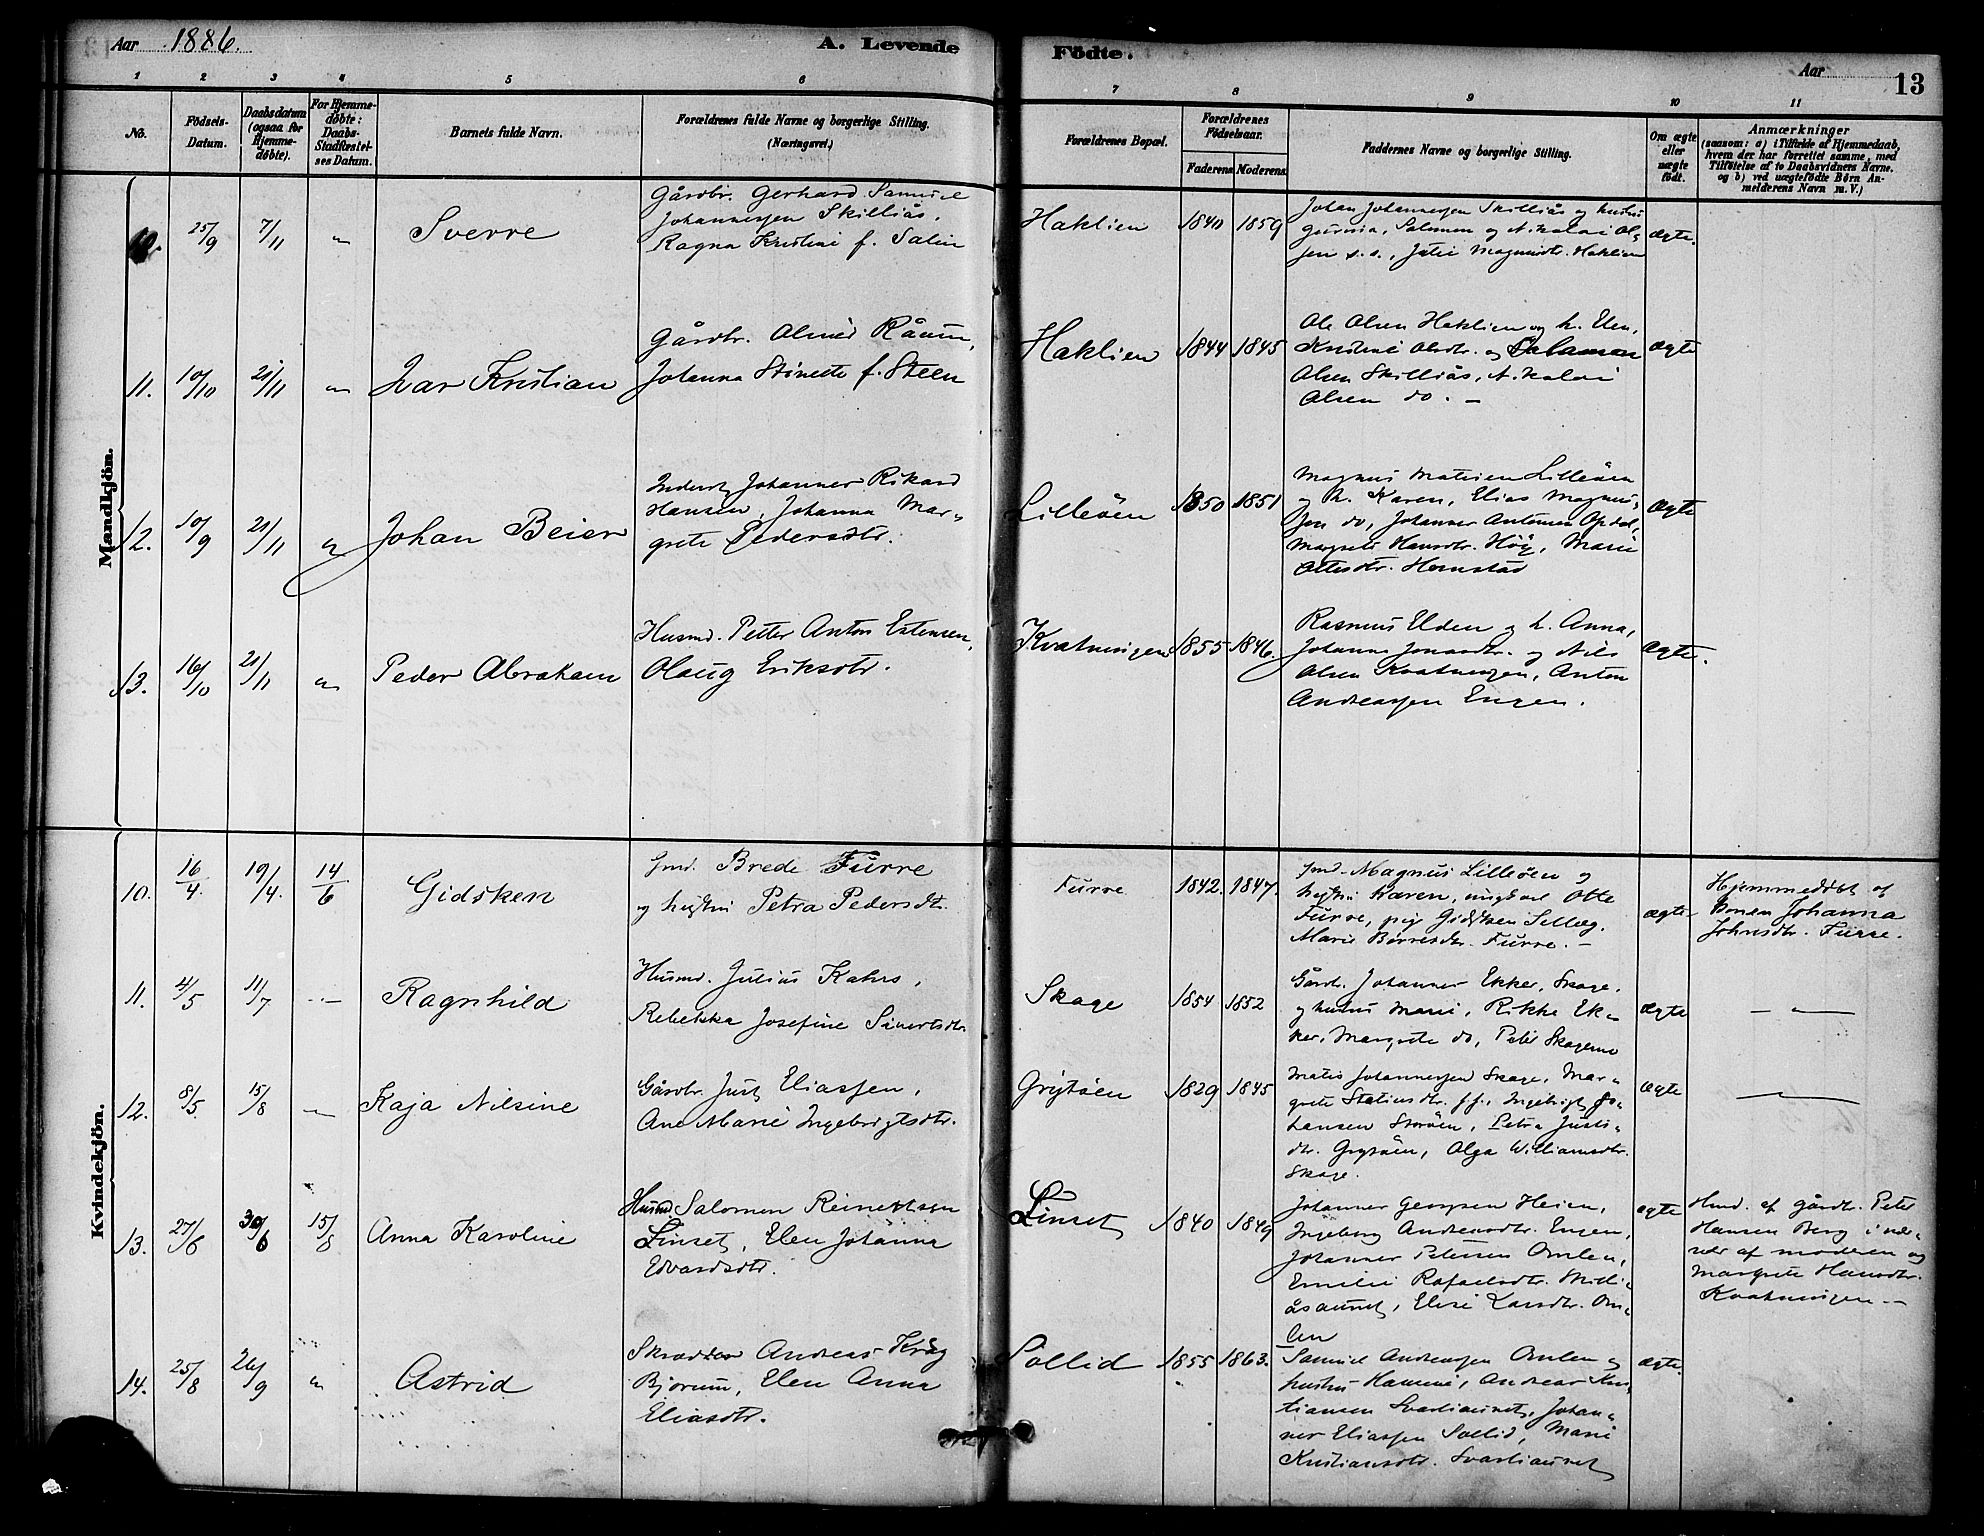 Aar 1886.
A. Levende Födte.
Aar
13
1 2 3 4 5 6 7 8 9 10 11
No.
Födsels-
Datum.
Daabsdatum
(ogsaa for
Hjemme-
döbte).
For Hjemme-
döbte:
Daabs-
Stadfæstel-
ses Datum.
Barnets fulde Navn.
Forældrenes fulde Navne og borgerlige Stilling.
(Næringsvei.)
Forældrenes Bopæl.
Forældrenes
Födselsaar.
Faderens Moderens
Faddernes Navne og borgerlige Stilling.
Om ægte
eller
uægte
födt.
Anmærkninger
(saasom: a) i Tilfælde af Hjemmedaab,
hvem der har forrettet samme, med
Tilföielse af to Daabsvidners Navne.
og b) ved uægtefödte Börn An-
melderens Navn m. V.)
Mandkjön.
10. 25/9 7/11 " Sverre
Gårdbr. Gerhard Samuel
Johannessen Skilliås.
Ragna Kristine f. Salin
Haklien 1840 1859
Johan Johannessen Skilliås og hustru
Gurina, Salomon og Nikolai Ol-
sen s. s., Julie Magnusdtr. Haklien
ægte.
11. 10/10 21/11 " Ivar Kristian
Gårdbr. Råum,
Johanna f. Steen
Haklien 1844 1845
Ole Olsen Haklien og h. Elen,
Kristine Olsdtr. og Salamon
Olsen Skilliås, Nikolai
Olsen do. -
ægte
12. 10/9 21/11 " Johan Beier
Inderst Johannes Rikard
Hansen, Johanna Mar-
grete Pedersdtr.
Lilleöen 1850 1851
Magnus Matisen Lilleöen
og h. Karen, Elias Magnus-
sen do, Johannes Antonsen Opdal,
Margrete Hansdtr. Hög, Marie
Ottesdtr. Hemstad
ægte
13. 16/10 21/11 " Peder Abraham
Husmd. Petter Anton Estensen,
Olaug Eriksdtr.
Kvatningen 1855 1846.
Rasmus Elden og h. Anna,
Johanna Jonasdtr. og Nils
Olsen Kvatningen, Anton
Andreassen Engen.
ægte.
Kvindekjön.
10. 16/4. 19/4. 14/6 Gidsken
Gmd. Brede Furre
og hustru Petra Pedersdtr.
Furre 1842. 1847.
Gmd. Magnus Lilleöen og
hustru Karen, ungkarl Otte
Furre, pige Gidsken Selleg.
Marie Börresdtr. Furre. -
ægte
Hjemmedöbt af
konen Johanna
Johnsdtr. Furre.
11. 4/5 11/7 - Ragnhild
Husmd. Julius Kahrs,
Rebekka Josefine Sivertsdtr.
Skage 1854 1852
Gårdbr. Johannes Ekker, Skage,
og hustru Marie, Rikke Ek-
ker, Margrete do, Peter Skagemo
ægte - " -
12. 8/5 15/8 - Kaja Nilsine
Gårdbr. Just Eliassen,
Ane Marie Ingebrigtsdtr.
Grytöen 1829 1845
Matis Johannessen Skage, Mar-
grete Statiusdtr. s. s., Ingebrigt Jo-
hansen Storöen, Petra Justs-
dtr. Grytöen, Olga Williamsdtr.
Skage.
ægte - " -
13. 27/6 30/6 15/8 Anna Karoline
Husmd Salomon Reinertsen
Linset, Elen Johanna
Edvardsdtr.
Linset 1840 1849
Johannes Georgsen Heien,
Ingeborg Andreasdtr. Engen,
Johannes Petersen Omlen,
Emilie Rafaelsdtr. Skilli-
åsaunet, Elise Larsdtr. Om-
len
ægte
Hmd. af gårdbr. Peter
Hansen Berg i nær-
vær af moderen og
Margrete Hansdtr.
Kvatningen. -
14. 25/8 26/9 " Astrid
Skrædder Andreas Krog
Bjorum, Elen Anna
Eliasdtr.
Sollid 1855 1863.
Samuel Andreassen Omlen og
hustru Hanna, Andreas Kris-
tiansen Svarliaunet, Johan-
nes Eliassen Sollid, Marie
Kristiansdtr. Svarliaunet
ægte.